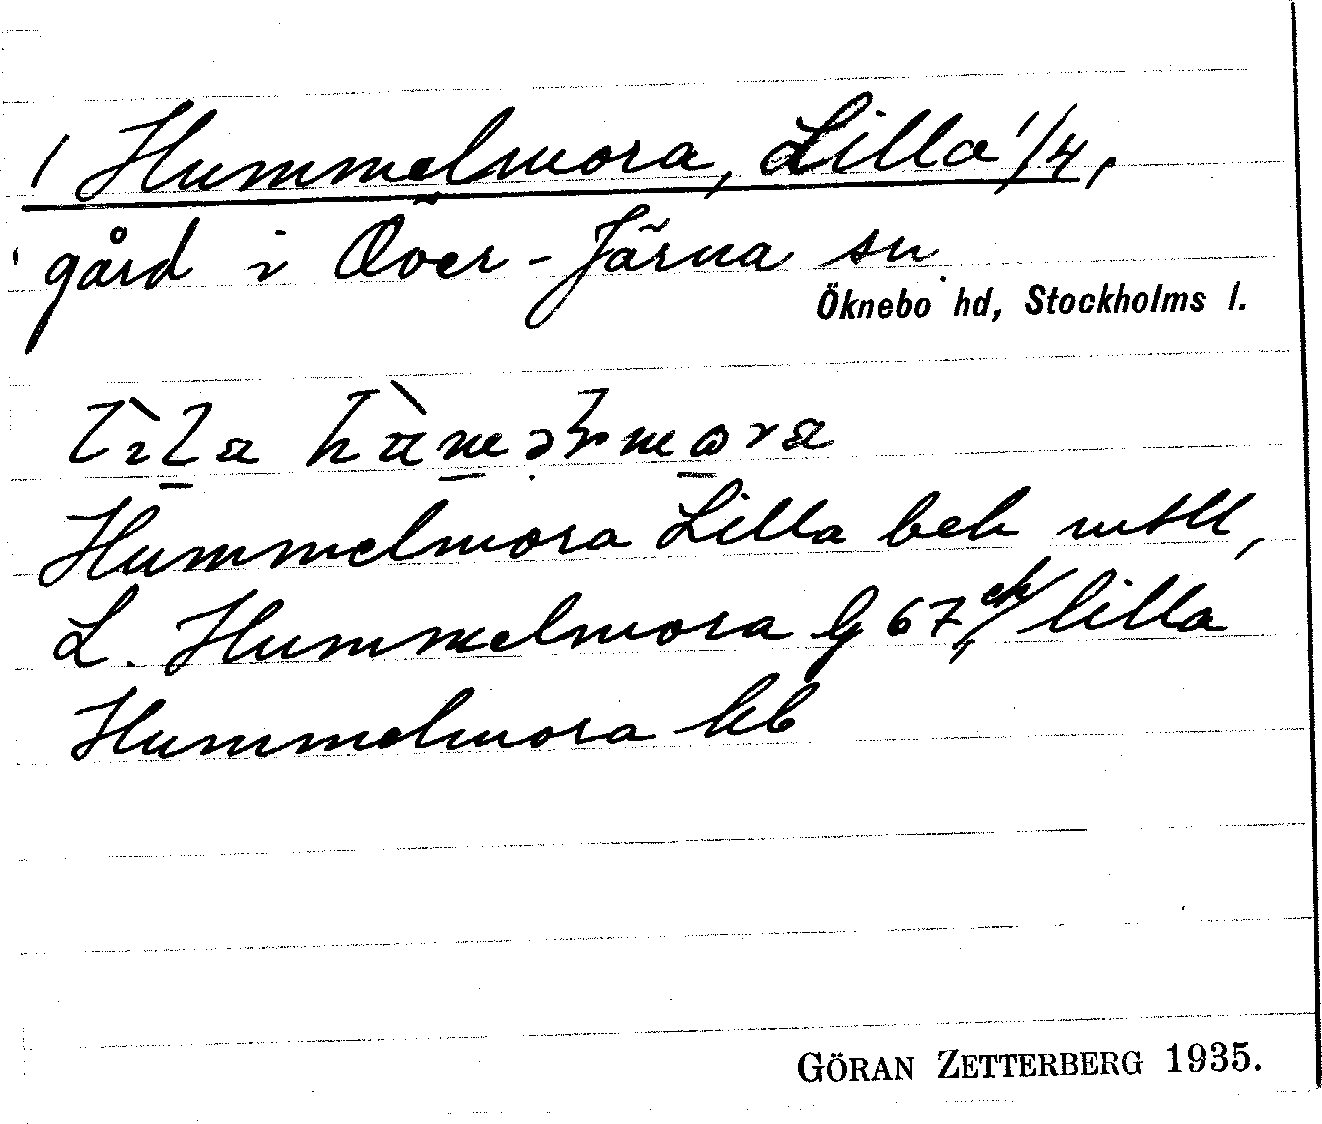 / Hummelmora, Lilla 1/4,
gård i Över-Järna sn
Öknebo hd, Stockholms l.
Hummelmora Lilla beb mtll,
L. Hummelmora G 67, ek/ lilla
Hummelmora kb
GÖRAN ZETTERBERG 1935.